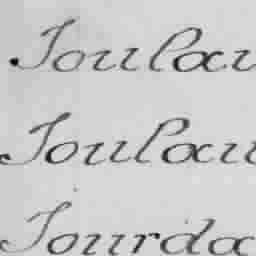 Joulau
Joulau
Jourda